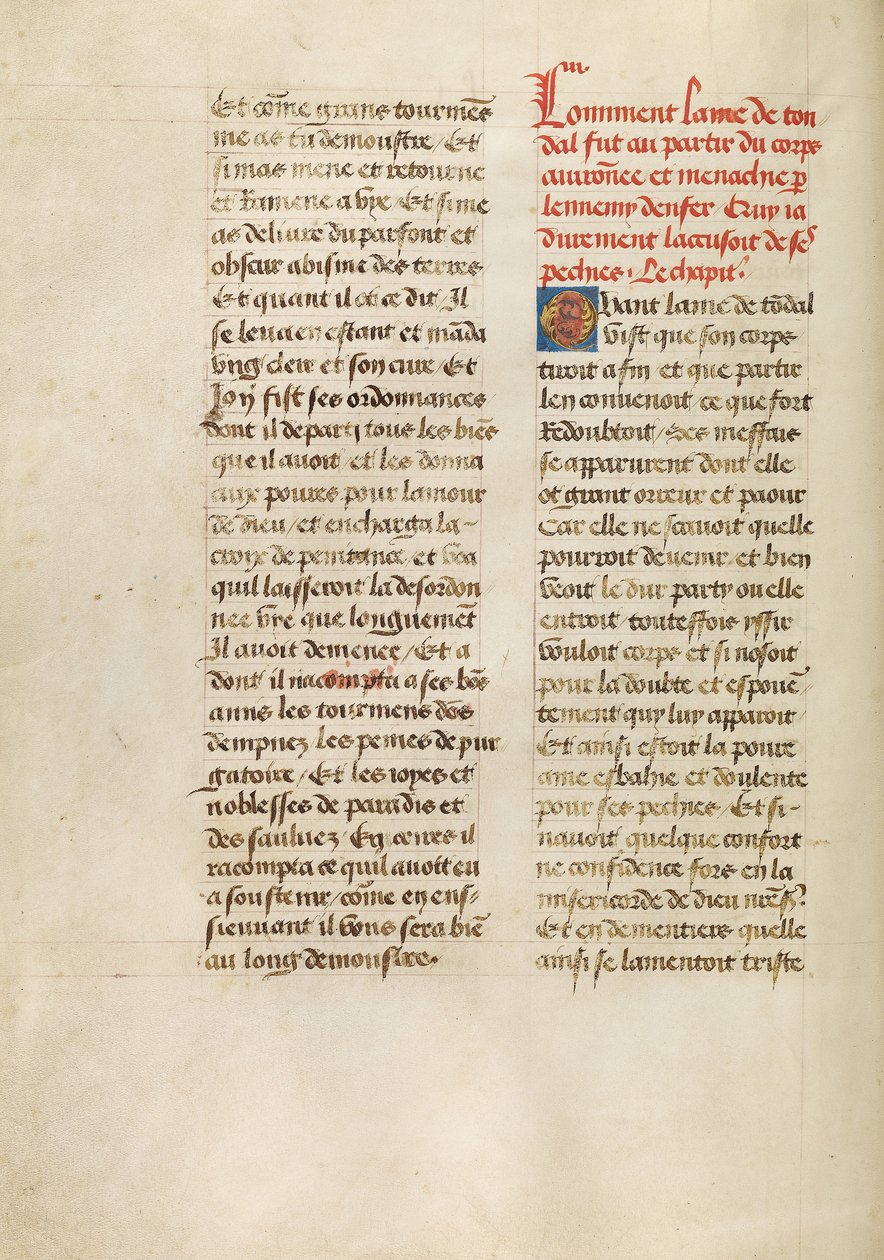 Et cōme grans tourmēs
me as tu demoustre / Et
si mas mene et retourne
et Ramene a vye / Et si me
as deliure du parfont et
obscur abisme des terres
Et quant il ot ce dit / Il
se leua en estant et māda
vng clerc et son cure / Et
Ioÿ fist ses ordonnances
dont il departj tous les biēs
que il auoit / et les donna
aux poures pour lamour
de dieu / et encharga la-
croix de penitance / et voa
quil laisseroit la desordon-
nee vye que longuemēt
Il auoit demenee / Et a
dont il racompta a ses bōs
amis les tourmens des
dempnez les peines de pur
gatoire / Et les ioyes et
noblesses de paradis et
des sauluez / Et il
racompta ce quil auoit eu
a soustenir / cōme en ens-
sieuuant il vous sera biē
au long demoustre.
iii.
Comment lame de ton
dal fut au partir du corps
auirōnee et menachie p̲
lennemy denfer / Quy ia
durement laccusoit de seˢ
pechies / Le chapit.
Quant lame de tōdal
vist que son corps
tiroit a fin / et que partir
len conuenoit / ce que fort
Redoubtoit / Ses meffais
se apparurent dont elle
ot grant orreur et paour
Car elle ne scauoit quelle
pourroit deuenir / et bien
veoit le dur party ou elle
entroit / touteffois yssir
vouloit corps et si nosoit
pour la doubte et espouē-
tement quy luy apparoit
Et ainsi estoit la poure
ame esbahie et doulente
pour ses pechies / Et si-
nauoit quelque confort
ne confidence fors en la
misericorde de dieu nr̄e sʳ.
Et en dementiers quelle
ainsi se lamentoit triste